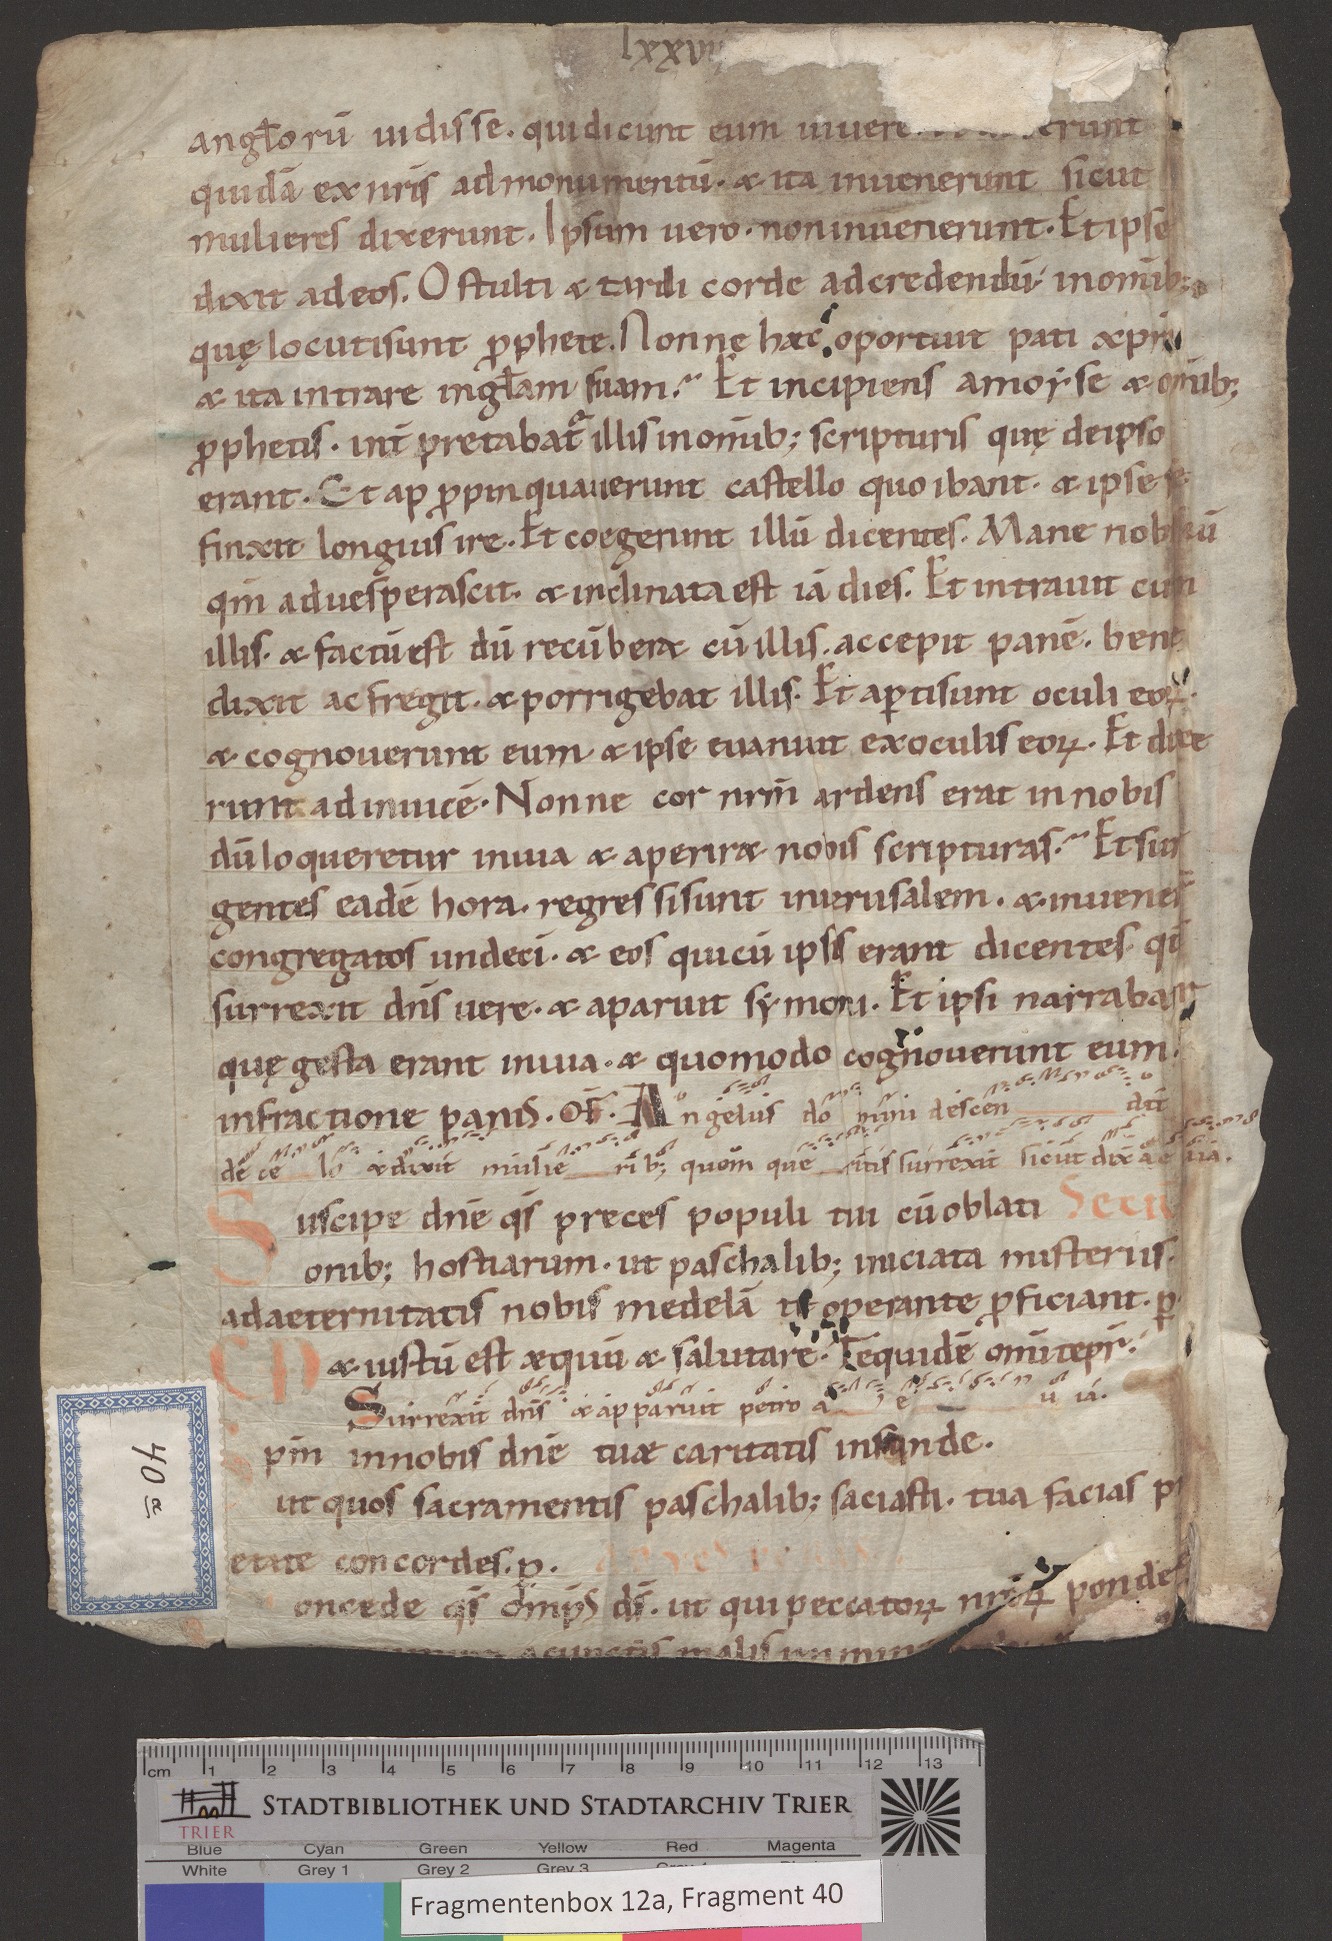 lxxvii
angłorū uidisse. qui dicunt eum uiuere.
quidā ex nr̄is ad monumentū. & ita inuenerunt sicut
mulieres dixerunt. Ipsum uero. non inuenerunt. Et ipse
dixit ad eos. O stulti & tardi corde ad credendū. in om̄ib;
quę locuti sunt ꝓphete. Nonne hæc oportuit pati xp̄m
& ita intrare in głam suam? Et incipiens a moyse & om̄ib;
ꝓphetis. int̄pretabat̄ illis in om̄ib; scripturis quę de ipso
erant. Et apꝓpinquauerunt castello quo ibant. & ipse se
finxit longius ire. Et coegerunt illū dicentes. Mane nobiscū
qm̄ aduesperascit. & inclinata est iā dies. Et intrauit cum
illis. & factū est dū recūber& cū illis. accepit panē. bene
dixit ac fregit. & porrigebat illis. Et aꝑti sunt oculi eoꝝ.
& cognouerunt eum & ipse euanuit ex oculis eoꝝ. Et dixe
runt ad inuicē. Nonne cor nr̄m ardens erat in nobis
dū loqueretur in uia & aperir& nobis scripturas? Et sur
gentes eadē hora. regressi sunt in ierusalem. & inuener̄
congregatos undeci. & eos qui cū ipsis erant dicentes qđ
surrexit dn̄s uere. & aparuit symoni. Et ipsi narrabant
quę gesta erant in uia. & quomodo cognouerunt eum
in fractione panis. OF. Angelus domini descendit
de celo & dixit mulierib; quom̄ queritis surrexit sicut dix̄ aeuia.
Suscipe dn̄e qs̄ preces populi tui cū oblati Secr̄
onib; hostiarum. ut paschalib; iniciata misteriis.
ad aeternitatis nobis medelā te operante ꝓficiant. ꝑ
& iustū est æquū & salutare. Te quidē omītepr̄.
Surrexit dn̄s & apparuit petro aeuia.
sp̄m in nobis dn̄e tuæ caritatis infunde.
ut quos sacramentis paschalib; saciasti. tua facias pi
etate concordes. p.
oncede qs̄ om̄ps ds̄. ut qui peccatoꝝ nr̄oꝝ ponder̄
a cunctis malis
40a
cm 1 2 3 4 5 6 7 8 9 10 11 12 13
TRIER
STADTBIBLIOTHEK UND STADTARCHIV TRIER
Blue Cyan Green Yellow Red Magenta
White Grey 1 Grey 2 Grey 3
Fragmentenbox 12a, Fragment 40